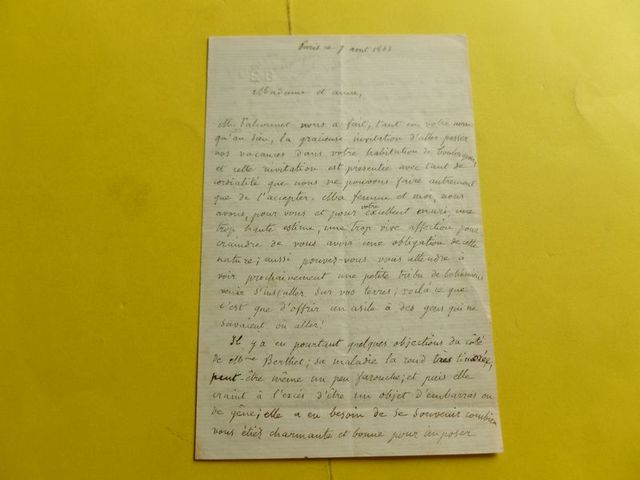 Paris ce 7 aout 1863
Madame et amie,
Mr Falconnet nous a fait, tant en votre nom
qu'au sien, la gracieuse invitation d'aller passer
nos vacances dans votre habitation de
et cette invitation est présentée avec tant de
cordialité que nous ne pouvons faire autrement
que de l'accepter. Ma femme et moi, nous
avons, pour vous et pour votre excellent mari, une
trop haute estime, une trop vive affection pour
craindre de vous avoir une obligation de cette
nature; aussi pouvez-vous vous attendre à
voir prochainement une petite tribu de bohémiens
venir s'installer sur vos terres; voilà ce que
c'est que d'offrir un asile à des gens qui ne
savaient où aller!
Il y a eu pourtant quelques objections du côté
de Mme Berthet; sa maladie la rend très timorée,
peut-être même un peu farouche; et puis elle
craint à l'excès d'être un objet d'embarras ou
de gêne; elle a eu besoin de se souvenir combien
vous étiez charmante et bonne pour imposer